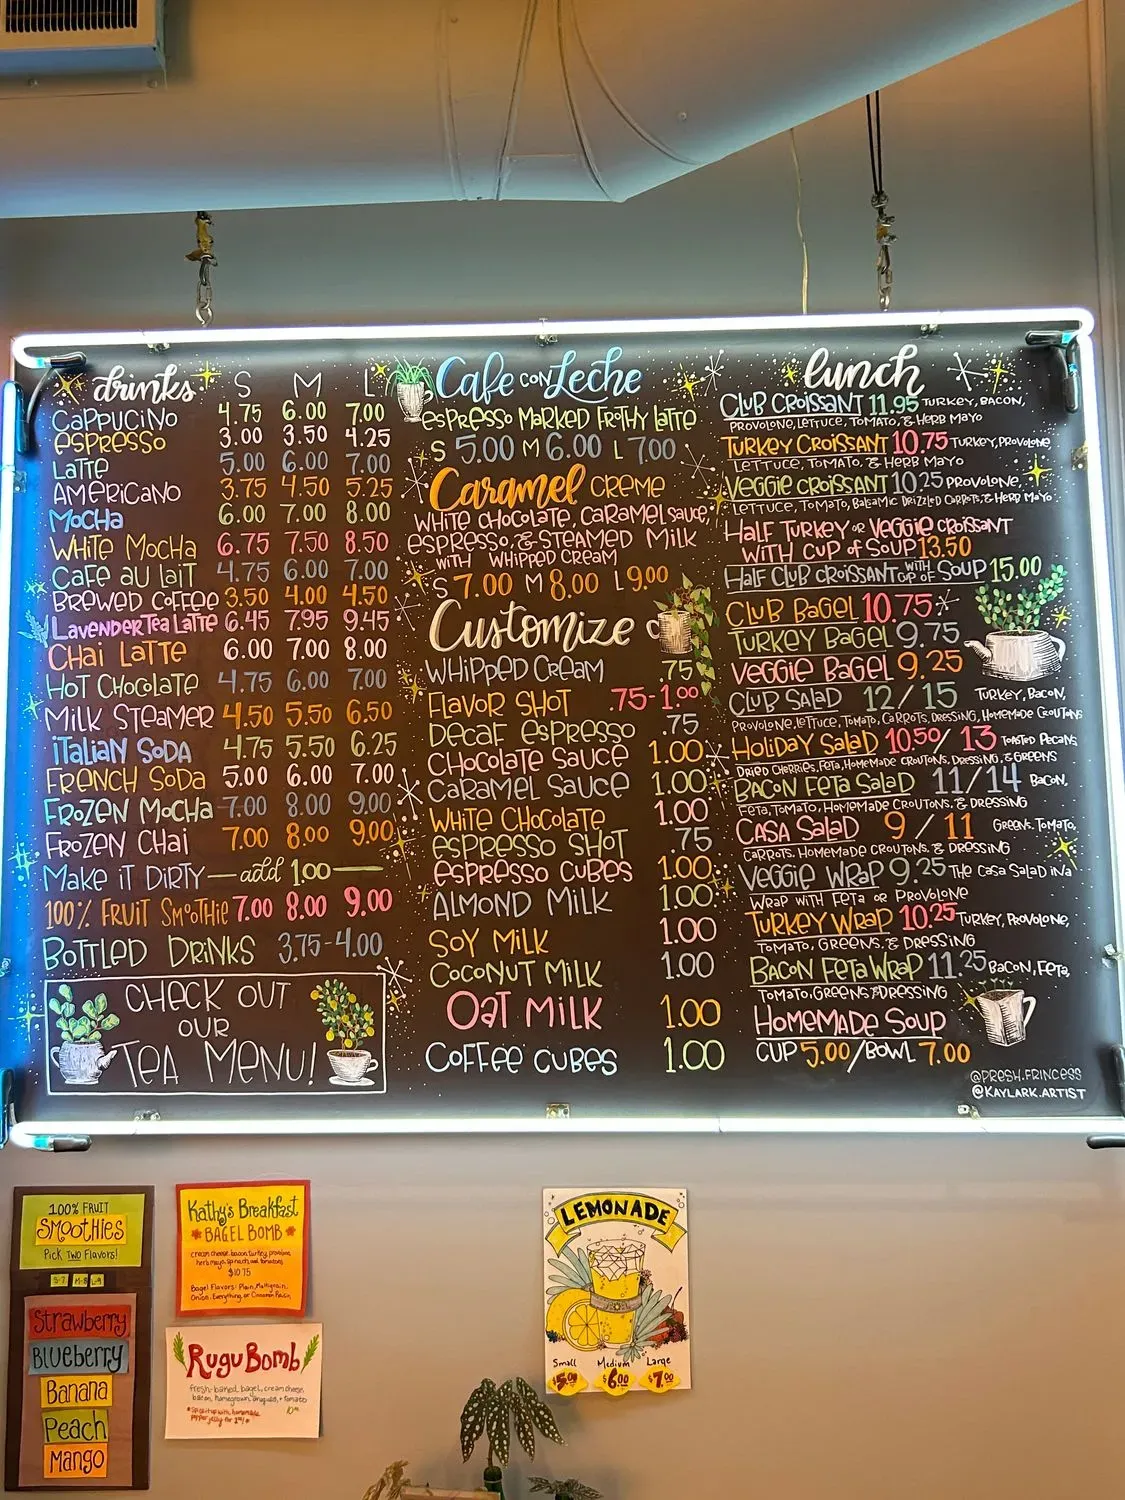 drinks S M L
CAPPUCINO 4.75 6.00 7.00
ESPRESSO 3.00 3.50 4.25
LATTE 5.00 6.00 7.00
AMERICANO 3.75 4.50 5.25
MOCHA 6.00 7.00 8.00
WHITE MOCHA 6.75 7.50 8.50
CAFE AU LAIT 4.75 6.00 7.00
BREWED COFFEE 3.50 4.00 4.50
LAVENDER TEA LATTE 6.45 7.95 9.45
CHAI LATTE 6.00 7.00 8.00
HOT CHOCOLATE 4.75 6.00 7.00
MILK STEAMER 4.50 5.50 6.50
ITALIAN SODA 4.75 5.50 6.25
FRENCH SODA 5.00 6.00 7.00
FROZEN MOCHA 7.00 8.00 9.00
FROZEN CHAI 7.00 8.00 9.00
MAKE IT DIRTY — add 1.00 —
100% FRUIT SMOOTHIE 7.00 8.00 9.00
BOTTLED DRINKS 3.75-4.00
CHECK OUT
OUR
TEA MENU!
Cafe con Leche
ESPRESSO MARKED FROTHY LATTE
S 5.00 M 6.00 L 7.00
Caramel CREME
WHITE CHOCOLATE, CARAMEL SAUCE,
ESPRESSO, & STEAMED MILK
WITH WHIPPED CREAM
S 7.00 M 8.00 L 9.00
Customize
WHIPPED CREAM .75
FLAVOR SHOT .75-1.00
DECAF ESPRESSO .75
CHOCOLATE SAUCE 1.00
CARAMEL SAUCE 1.00
WHITE CHOCOLATE 1.00
ESPRESSO SHOT .75
ESPRESSO CUBES 1.00
ALMOND MILK 1.00
SOY MILK 1.00
COCONUT MILK 1.00
OAT MILK 1.00
COFFEE CUBES 1.00
lunch
CLUB CROISSANT 11.95 TURKEY, BACON,
PROVOLONE, LETTUCE, TOMATO, & HERB MAYO
TURKEY CROISSANT 10.75 TURKEY, PROVOLONE,
LETTUCE, TOMATO, & HERB MAYO
VEGGIE CROISSANT 10.25 PROVOLONE,
LETTUCE, TOMATO, BALSAMIC DRIZZLED CARROTS, & HERB MAYO
HALF TURKEY OR VEGGIE CROISSANT
WITH CUP OF SOUP 13.50
HALF CLUB CROISSANT WITH CUP OF SOUP 15.00
CLUB BAGEL 10.75
TURKEY BAGEL 9.75
VEGGIE BAGEL 9.25
CLUB SALAD 12/15 TURKEY, BACON,
PROVOLONE, LETTUCE, TOMATO, CARROTS, DRESSING, HOMEMADE CROUTONS
HOLIDAY SALAD 10.50/13 TOASTED PECANS,
DRIED CHERRIES, FETA, HOMEMADE CROUTONS, DRESSING, & GREENS
BACON FETA SALAD 11/14 BACON,
FETA, TOMATO, HOMEMADE CROUTONS, & DRESSING
CASA SALAD 9/11 GREENS, TOMATO,
CARROTS, HOMEMADE CROUTONS, & DRESSING
VEGGIE WRAP 9.25 THE CASA SALAD IN A
WRAP WITH FETA OR PROVOLONE
TURKEY WRAP 10.25 TURKEY, PROVOLONE,
TOMATO, GREENS, & DRESSING
BACON FETA WRAP 11.25 BACON, FETA,
TOMATO, GREENS & DRESSING
HOMEMADE SOUP
CUP 5.00/BOWL 7.00
@PRESH.FRINCESS
@KAYLARK.ARTIST
100% FRUIT
SMOOTHIES
Pick TWO Flavors!
S-7 M-8 L-9
Strawberry
Blueberry
Banana
Peach
Mango
Kathy's Breakfast
BAGEL BOMB
cream cheese, bacon, turkey, provolone,
herb mayo, spinach, and tomatoes
$10.75
Bagel Flavors: Plain, Multigrain,
Onion, Everything, or Cinnamon Raisin
Rugu Bomb
fresh-baked bagel, cream cheese,
bacon, homegrown arugula, + tomato
LEMONADE
Small Medium Large
$5.00 $6.00 $7.00